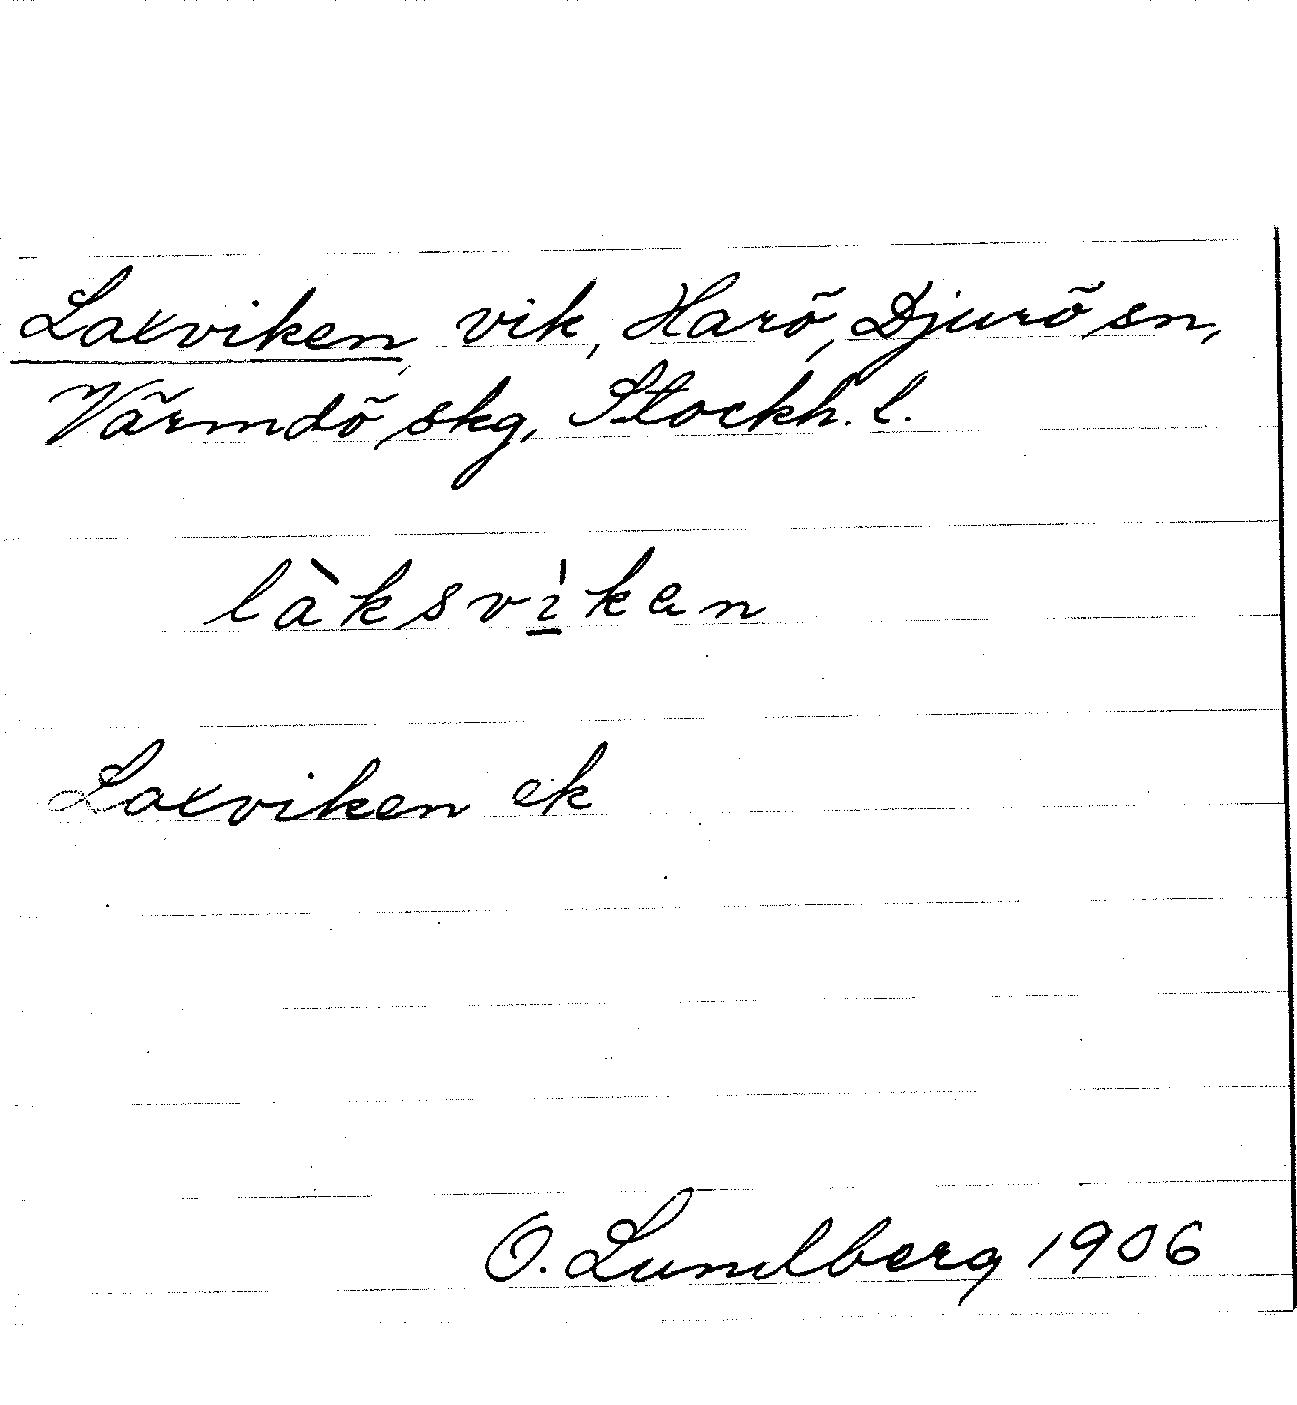 Laxviken, vik, Harö, Djurö sn,
Värmdö skg, Stockh. l.
làksvìkan
Laxviken ek
O. Lundberg 1906